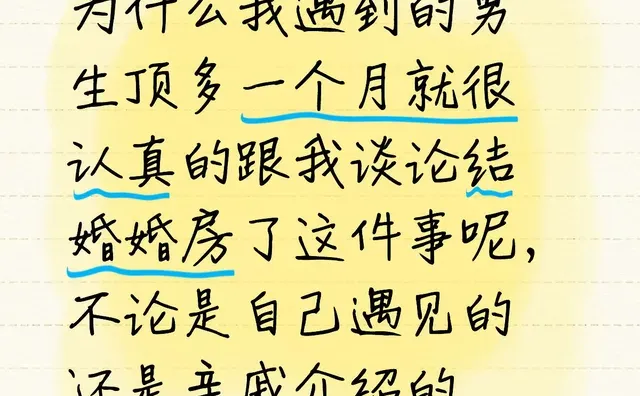 为什么我遇到的男
生顶多一个月就很
认真的跟我谈论结
婚婚房了这件事呢,
不论是自己遇见的
还是亲戚介绍的